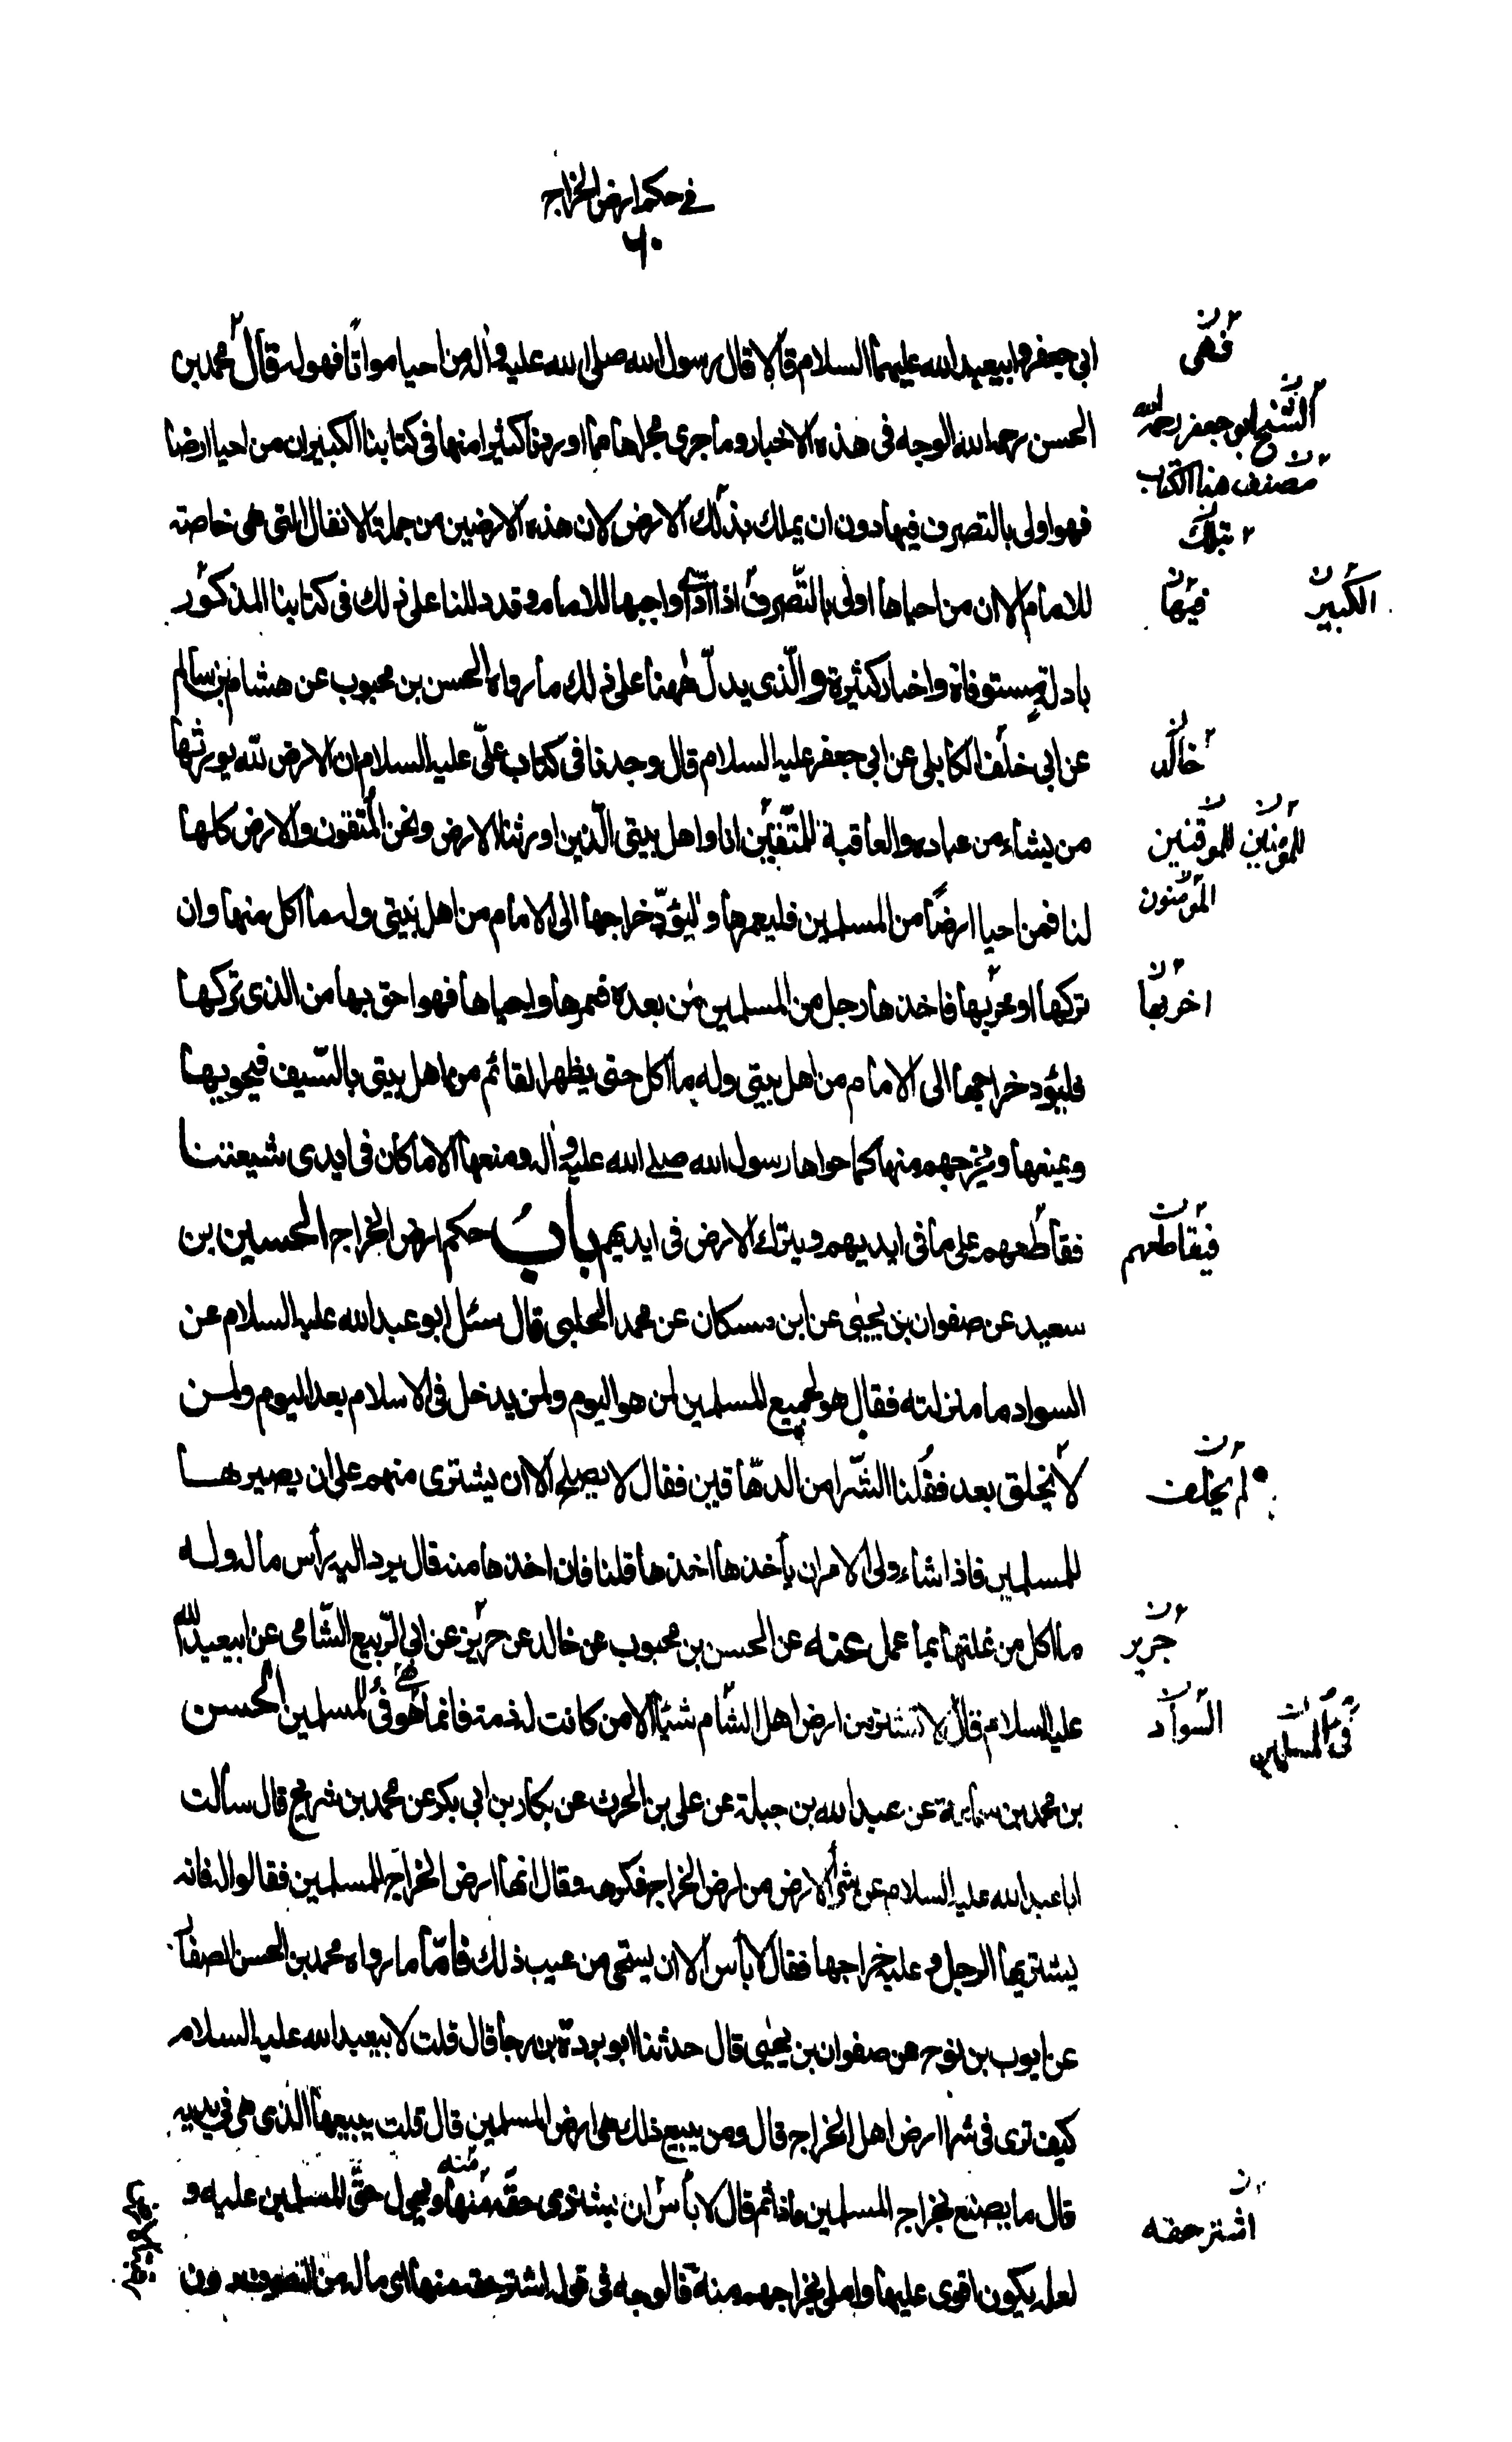 في حكم ارض الخراج
٦٠
ابي جعفر وابيعبد الله عليهما السلام قالا قال رسول الله صلى الله عليه واله من احيا مواتا فهو له قال محمد بن
الحسن رحمه الله الوجه فى هذه الاخبار وما جرى مجراها مما اوردنا كثيرا منها فى كتابنا الكبير ان من احيا ارضا
فهو اولى بالتصرف فيها دون ان يملك بذلك الارض لان هذه الارضين من جملة الانفال التى هى خاصة
للامام الا ان من احياها اولى بالتّصرف اذا ادّى واجبها للامام وقد دللنا على ذلك فى كتابنا المذكور
بادلة مستوفاة واخبار كثيرة والّذى يدلّ ههنا على ذلك ما رواه الحسن بن محبوب عن هشام بن سالم
عن ابى خلف الكابلى عن ابى جعفر عليه السلام قال وجدنا فى كتاب علىّ عليه السلام ان الارض لله يورثها
من يشاء من عباده والعاقبة للمتّقين انا واهل بيتى الّذين اورثنا الارض ونحن المتقون والارض كلها
لنا فمن احيا ارضًا من المسلمين فليعمرها وليؤدّ خراجها الى الامام من اهل بيتى وله ما اكل منها وان
تركها او خربها فاخذها رجل من المسلمين من بعده فعمرها واحياها فهو احق بها من الذى تركها
فليؤد خراجها الى الامام من اهل بيتى وله ما اكل حتى يظهر القائم من اهل بيتى بالسّيف فيحويها
ويمنعها ويخرجهم منها كما حواها رسول الله صلى الله عليه واله ومنعها الا ما كان فى ايدى شيعتنا
فقاطعهم على ما فى ايديهم ويترك الارض فى ايديهم باب حكم ارض الخراج الحسين بن
سعيد عن صفوان بن يحيى عن ابن مسكان عن محمد الحلبى قال سئل ابو عبد الله عليه السلام عن
السواد ما منزلته فقال هو لجميع المسلمين لمن هو اليوم ولمن يدخل فى الاسلام بعد اليوم ولمن
لا يخلق بعد فقلنا الشّرا من الدهّاقين فقال لا يصلح الا ان يشترى منهم على ان يصيرها
للمسلمين فاذا شاء ولى الامر ان يأخذها اخذها قلنا فان اخذها منه قال يرد اليه رأس ماله وله
ما اكل من غلتها بما عمل عنه عن الحسن بن محبوب عن خالد عن حريز عن ابى الرّبيع الشّامى عن ابيعبد الله
عليه السلام قال لا تشتر من ارض اهل الشّام شيئا الا من كانت له ذمة فانما هو فئ للمسلمين الحسن
بن محمد بن سماعة عن عبد الله بن جبلة عن على بن الحرث عن بكار بن ابى بكر عن محمد بن شريح قال سألت
ابا عبد الله عليه السلام عن شرا الارض من ارض الخراج فكرهه وقال انما ارض الخراج للمسلمين فقالوا له فانه
يشتريها الرجل وعليه خراجها فقال لا بأس الا ان يستحى من عيب ذلك فامّا ما رواه محمد بن الحسن الصفار
عن ايوب بن نوح عن صفوان بن يحيى قال حدثنا ابو بردة بن رجا قال قلت لابيعبد الله عليه السلام
كيف ترى فى شرا ارض اهل الخراج قال ومن يبيع ذلك هى ارض المسلمين قال قلت يبيعها الذى هى فى يديه
قال ما يصنع بخراج المسلمين ماذا ثم قال لا بأس ان يشترى حقه منها ويحول حقّ المسلمين عليه و
لعله يكون اقوى عليها واملى بخراجهم منه فالوجه فى قوله اشتر حقه منها اى ماله من التصرف دون
فهى
الشّيخ ابو جعفر رحمه الله
مصنف هذا الكتاب
تلك
فيها
الكبير
خالد
للمؤمنين للموقنين
المؤمنون
اخربها
فيقاطعهم
لم يخلق
جرير
السواد
فئ المسلمين
منه
اشتر حقه